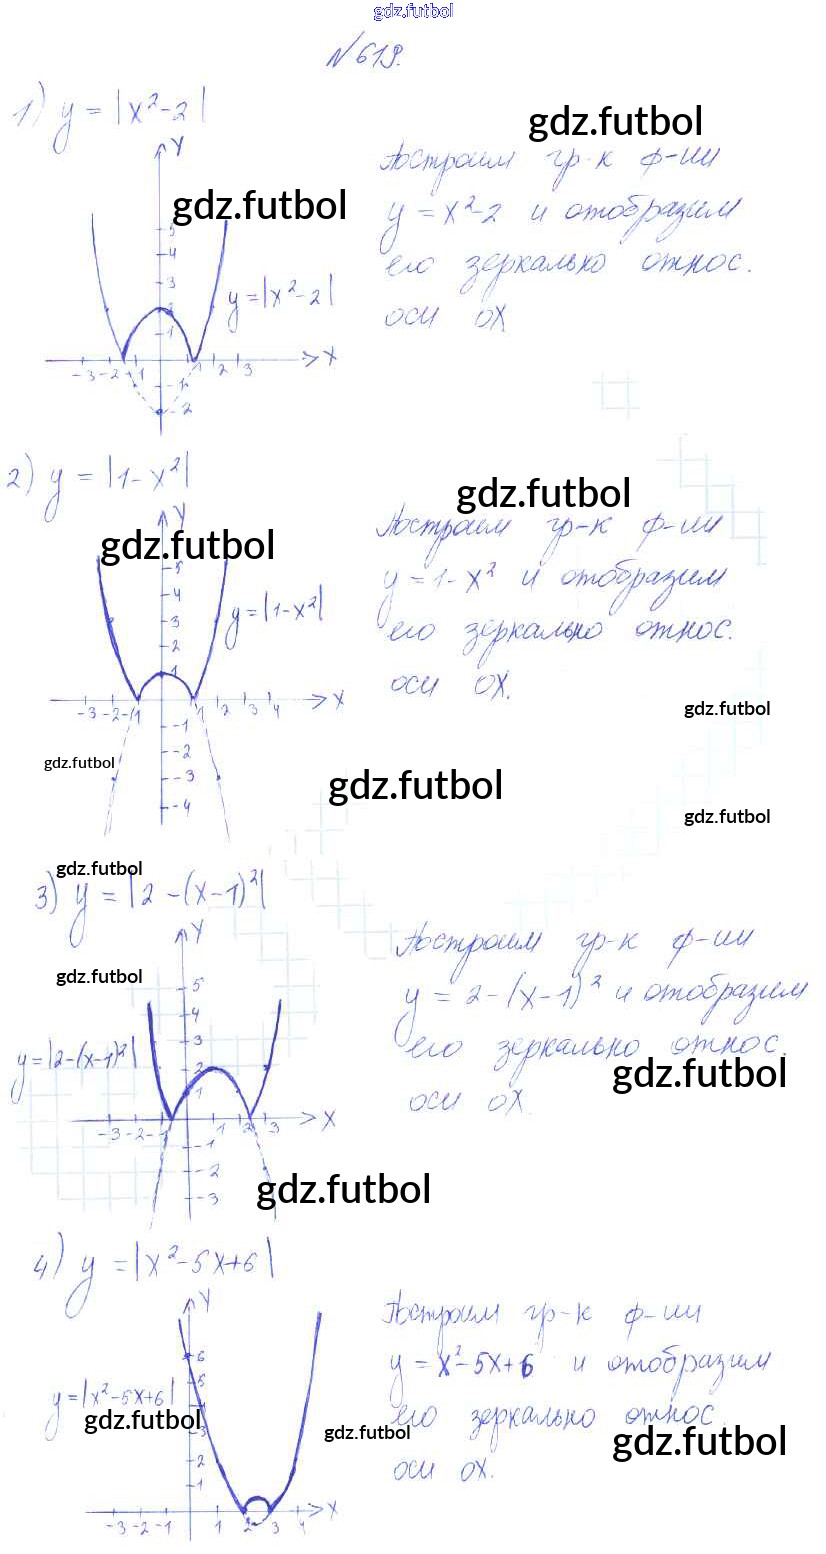 gdz.futbol
№ 619.
1) y = |x²-2|
gdz.futbol
Построим гр-к ф-ии
y = x²-2 и отобразим
его зеркально относ.
оси OX
gdz.futbol
Y
5
4
3
2
1
y=|x²-2|
-3 -2 -1 1 2 3 X
-1
-2
2) y = |1-x²|
gdz.futbol
Построим гр-к ф-ии
y = 1-x² и отобразим
его зеркально относ.
оси OX.
gdz.futbol
Y
5
4
3
2
1
y=|1-x²|
-3 -2 -1 1 2 3 4 X
-1
-2
-3
-4
gdz.futbol
gdz.futbol
gdz.futbol
gdz.futbol
gdz.futbol
3) y = |2-(x-1)²|
Построим гр-к ф-ии
y = 2-(x-1)² и отобразим
его зеркально относ.
оси OX.
gdz.futbol
gdz.futbol
Y
5
4
3
2
1
y=|2-(x-1)²|
-3 -2 -1 1 2 3 X
-1
-2
-3
gdz.futbol
4) y = |x²-5x+6|
Построим гр-к ф-ии
y = x²-5x+6 и отобразим
его зеркально относ.
оси OX.
Y
6
5
4
3
2
1
y=|x²-5x+6|
gdz.futbol
gdz.futbol
gdz.futbol
-3 -2 -1 1 2 3 4 X